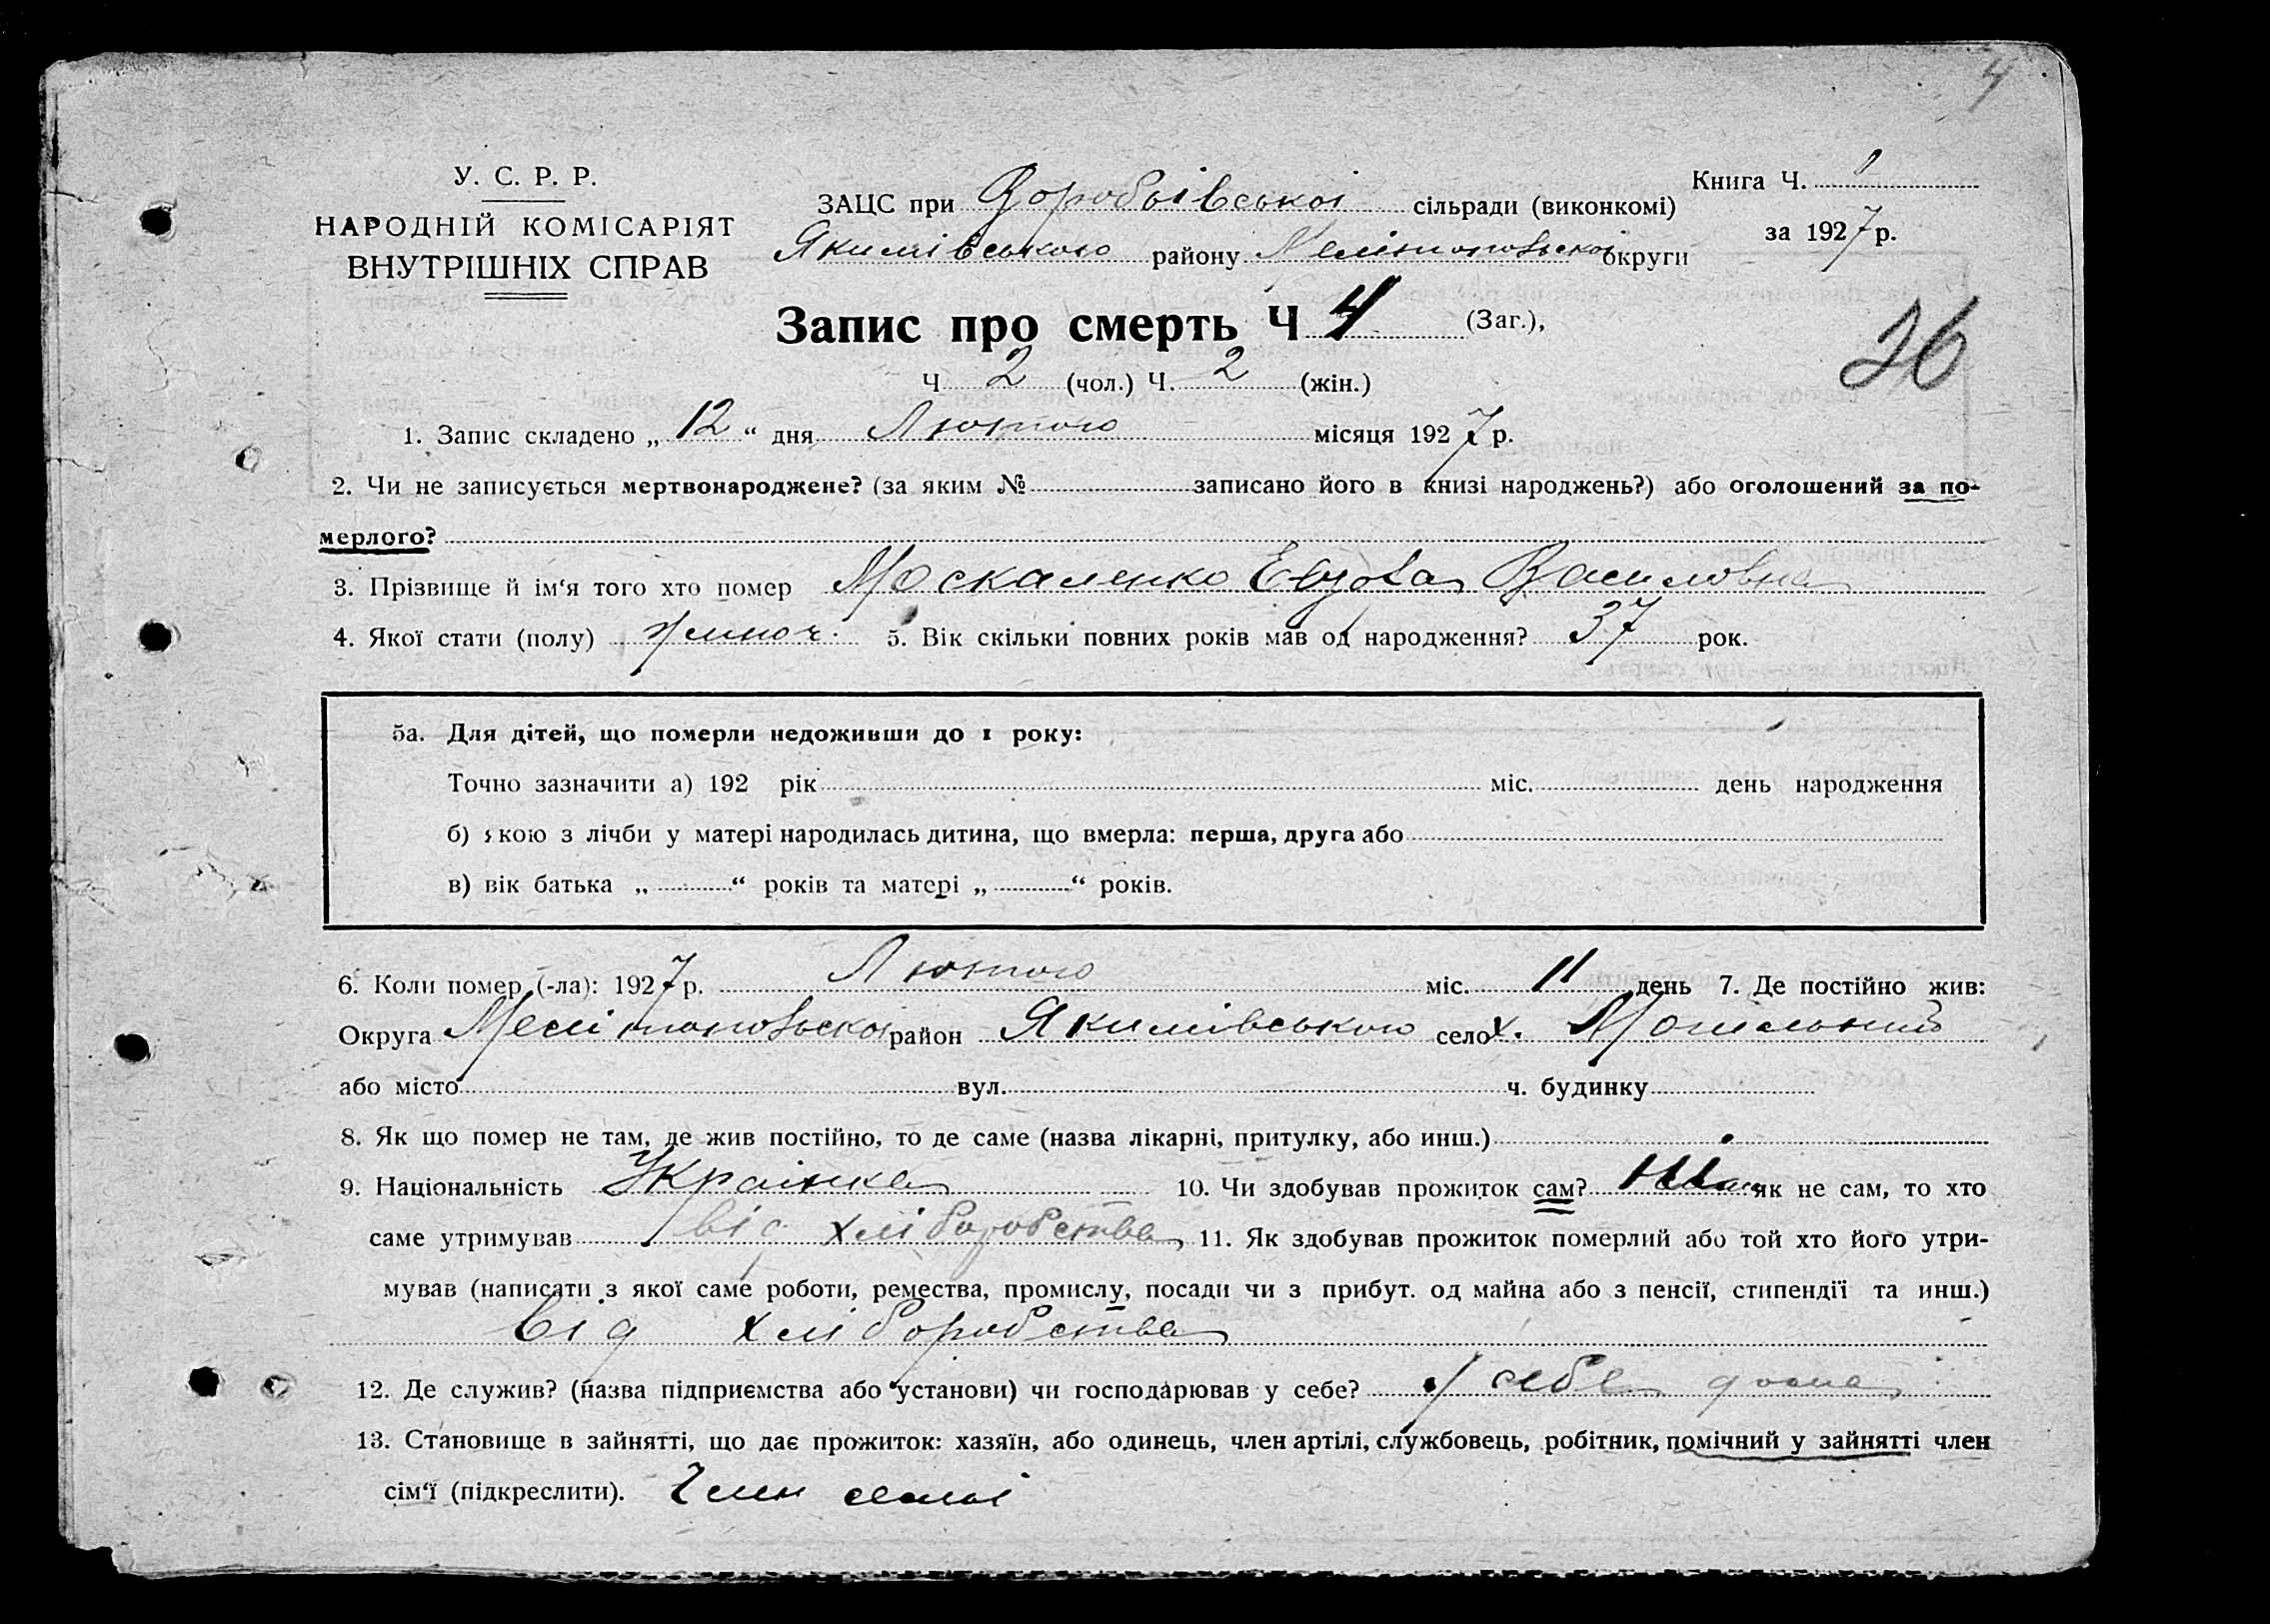 4
У. С. Р. Р.
НАРОДНІЙ КОМІСАРІЯТ
ВНУТРІШНІХ СПРАВ
ЗАЦС при Воробьівськоі сільради (виконкомі)
Якимівського району Мелітоповьскоі округи
Книга Ч.
за 1927 р.
Запис про смерть Ч 4 (Заг.),
Ч 2 (чол.) Ч. 2 (жін.)
26
1. Запис складено „ 12 “ дня Лютого місяця 1927 р.
2. Чи не записується мертвонароджене? (за яким № записано його в книзі народжень?) або оголошений за по-
мерлого?
3. Прізвище й ім‘я того хто помер Москаленко Василовна
4. Якої стати (полу) 5. Вік скільки повних років мав од народження? 37 рок.
5а. Для дітей, що померли недоживши до 1 року:
Точно зазначити а) 192 рік міс. день народження
б) якою з лічби у матері народилась дитина, що вмерла: перша, друга або
в) вік батька „ “ років та матері „ “ років.
6. Коли помер (-ла): 1927 р. Лютого міс. 11 день 7. Де постійно жив:
Округа Мелітоповьскоі район Якимівського село х.
або місто вул. ч. будинку
8. Як що помер не там, де жив постійно, то де саме (назва лікарні, притулку, або инш.)
9. Національність Украінка 10. Чи здобував прожиток сам? як не сам, то хто
саме утримував від хліборобства 11. Як здобував прожиток померлий або той хто його утри-
мував (написати з якої саме роботи, ремества, промислу, посади чи з прибут. од майна або з пенсії, стипендії та инш.)
від хліборобства
12. Де служив? (назва підприємства або установи) чи господарював у себе? у себе дома
13. Становище в зайнятті, що дає прожиток: хазяїн, або одинець, член артілі, службовець, робітник, помічний у зайнятті член
сім‘ї (підкреслити). Член семьі